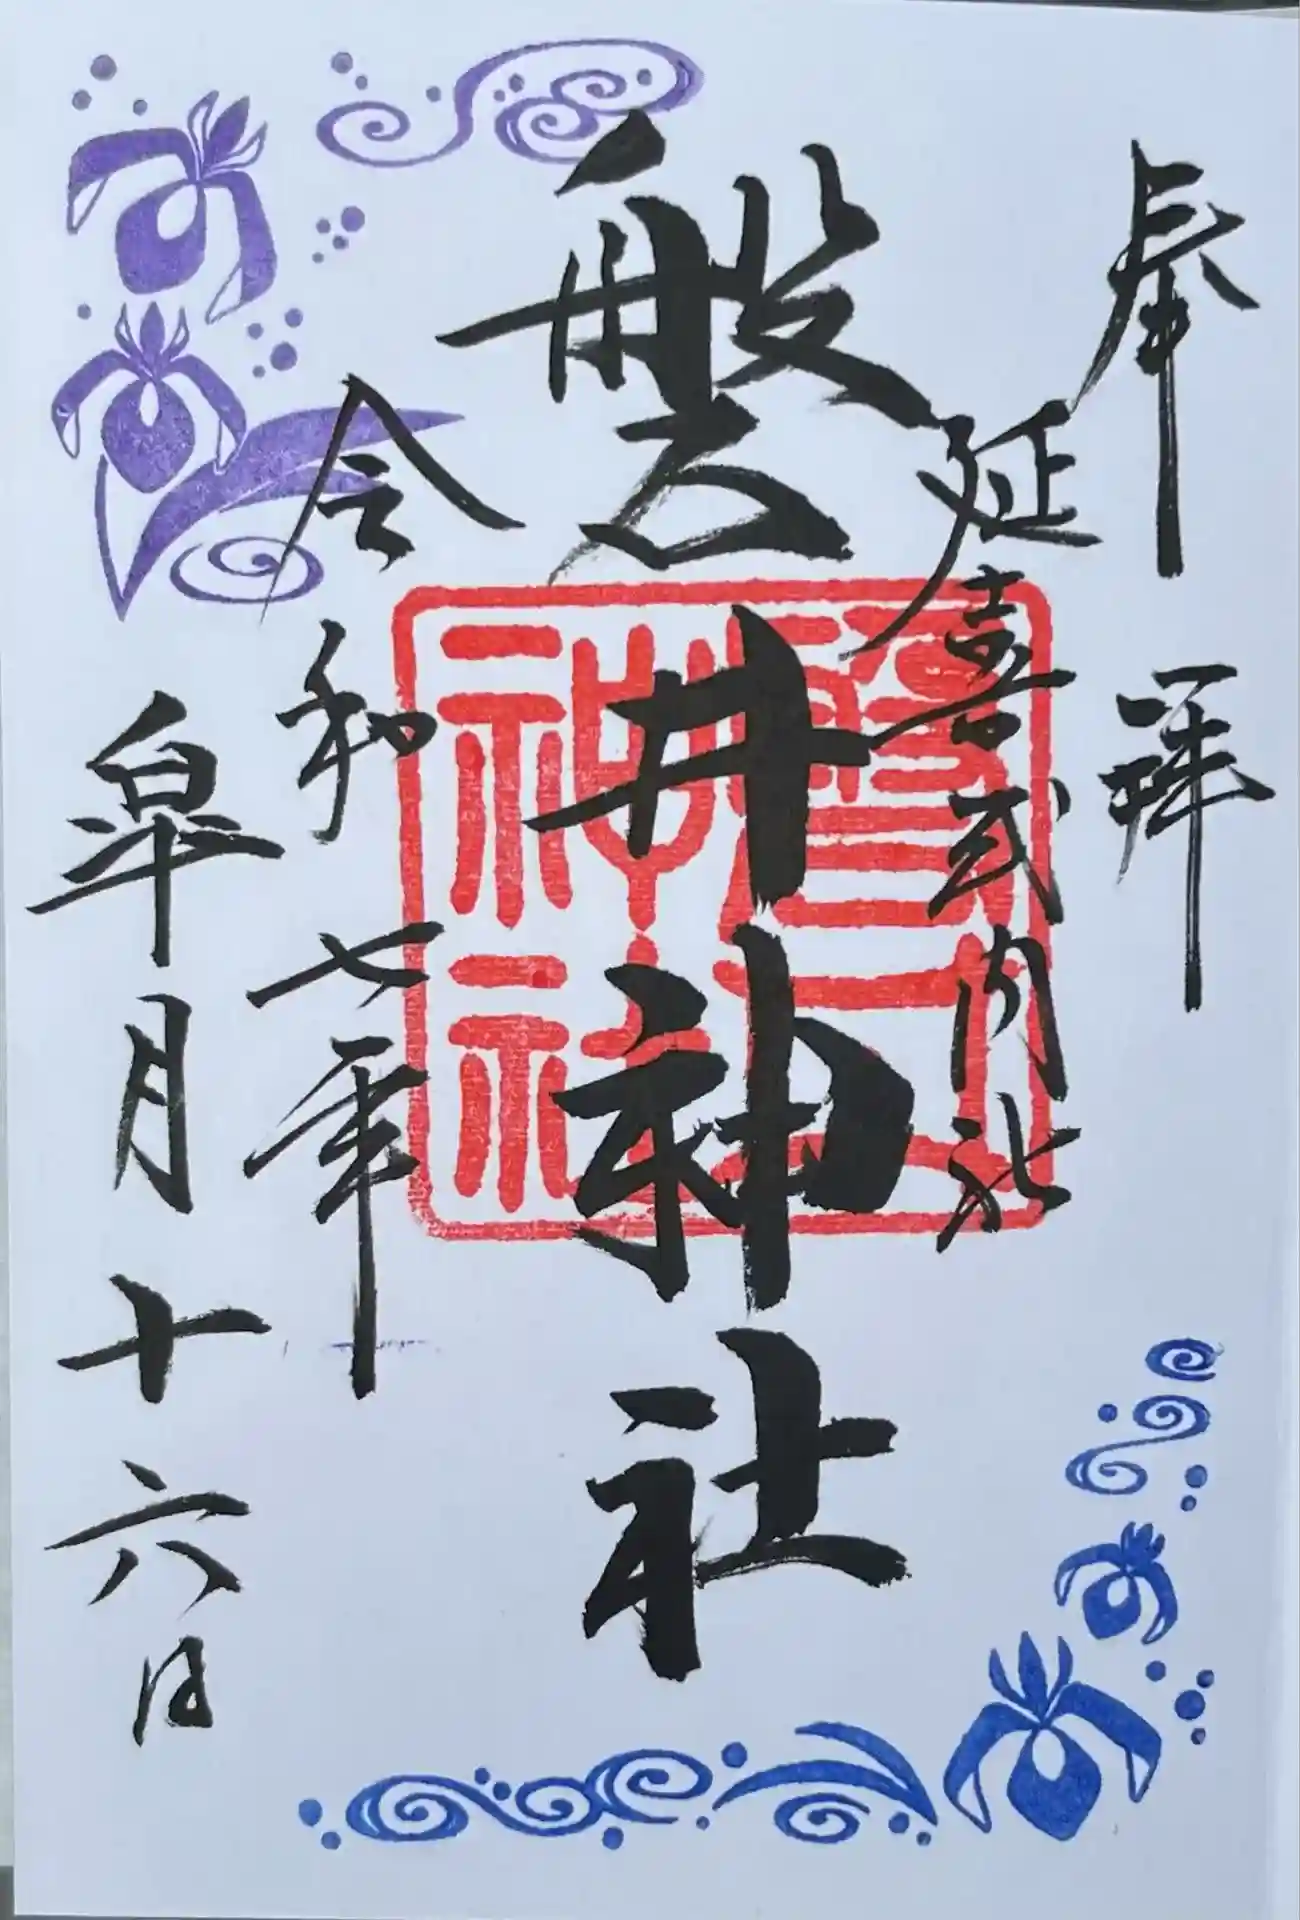 奉拝
延喜式内社
磐井神社
磐井
神社
令和七年
皐月十六日